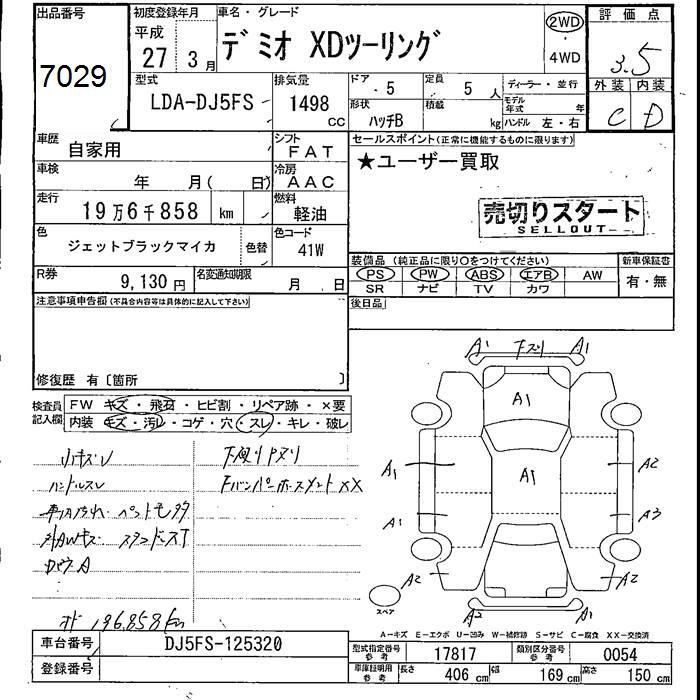 出品番号
7029
初度登録年月
平成
27 3月
車名・グレード
デミオ XDツーリング
2WD
4WD
評価点
3.5
外装 内装
C D
型式
LDA-DJ5FS
排気量
1498
cc
ドア
5
定員
5 人
形状
ハッチB
積載
kg
ディーラー・並行
モデル年式 年
ハンドル 左・右
車歴
自家用
シフト
FAT
セールスポイント(正常に機能するものに限ります)
★ユーザー買取
車検
年 月( 日)
冷房
AAC
走行
19万6千858 km
燃料
軽油
売切りスタート
SELLOUT
色
ジェットブラックマイカ
色替
色コード
41W
装備品 (純正品に限り○をつけてください)
新車保証書
PS PW ABS エアB AW
SR ナビ TV カワ
有・無
R券
9,130円
名変通知期限
月 日
後日品
注意事項申告欄(不具合内容等は具体的に記入して下さい)
修復歴 有〔箇所 〕
検査員記入欄
FW キズ・飛石・ヒビ割・リペア跡・×要
内装 キズ・汚レ・コゲ・穴・スレ・キレ・破レ
小キズレ
ハンドルスレ
196,858km
XX
A1 A1
A1
A1 A1 A2
A1 A3
A2 A2
A2 A1
スペア
A-キズ E-エクボ U-凹み W-補修跡 S-サビ C-腐食 XX-交換済
車台番号
DJ5FS-125320
登録番号
型式指定番号
参考
17817
類別区分番号
参考
0054
車庫証明用
参考
長さ
406 cm
幅
169 cm
高さ
150 cm